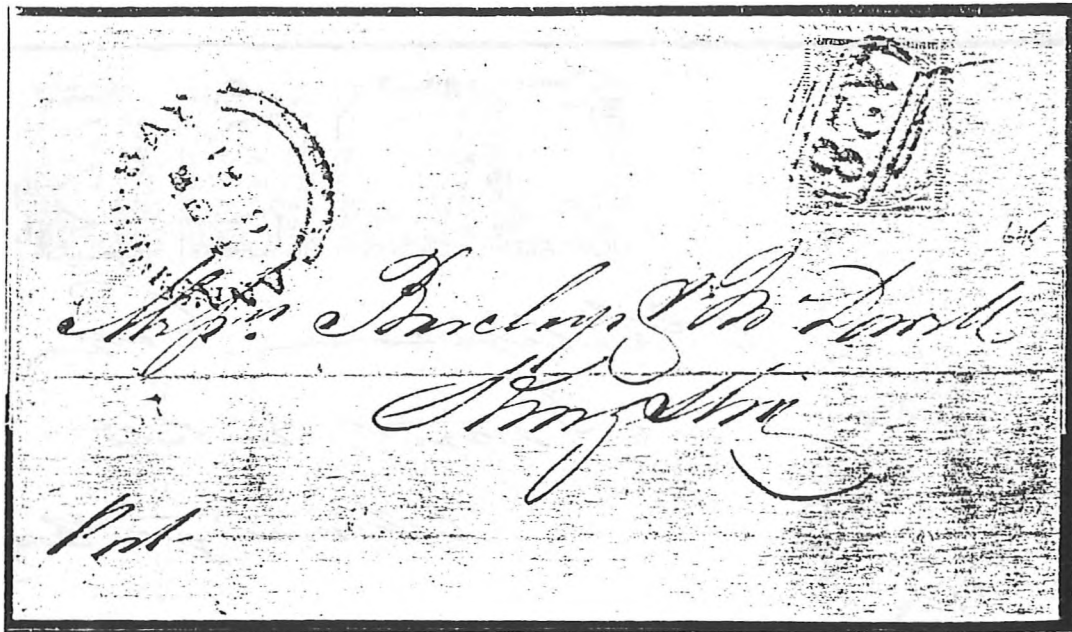 A28
BAY
Messrs Barclay & McDowell
Kingston
Post